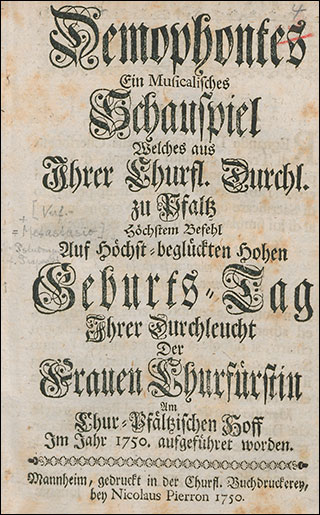 4
Demophontes
Ein Musicalisches
Schauspiel
Welches aus
Ihrer Churfl. Durchl.
zu Pfaltz
Höchstem Befehl
Auf Höchst-beglückten Hohen
Geburts-Tag
Ihrer Durchleucht
Der
Frauen Churfürstin
Am
Chur-Pfältzischen Hoff
Im Jahr 1750. aufgeführet worden.
Mannheim, gedruckt in der Churfl. Buchdruckerey,
bey Nicolaus Pierron 1750.